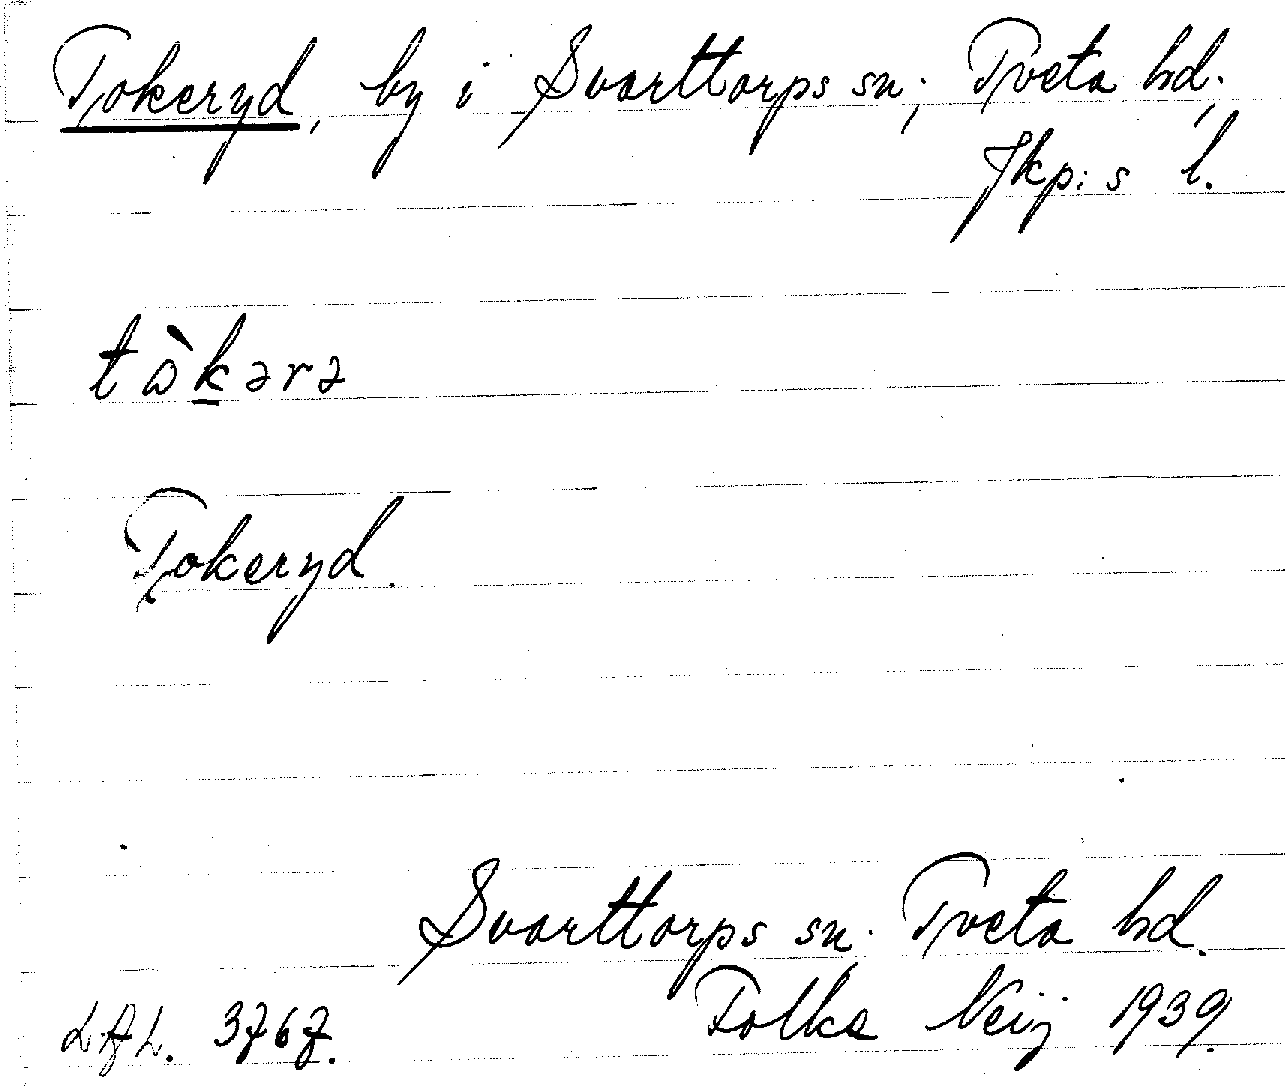 Tokeryd, by i Svarttorps sn; Tveta hd;
Jkp:s l.
tòkərə
Tokeryd.
Svarttorps sn. Tveta hd.
3767. Folke Neij 1939.